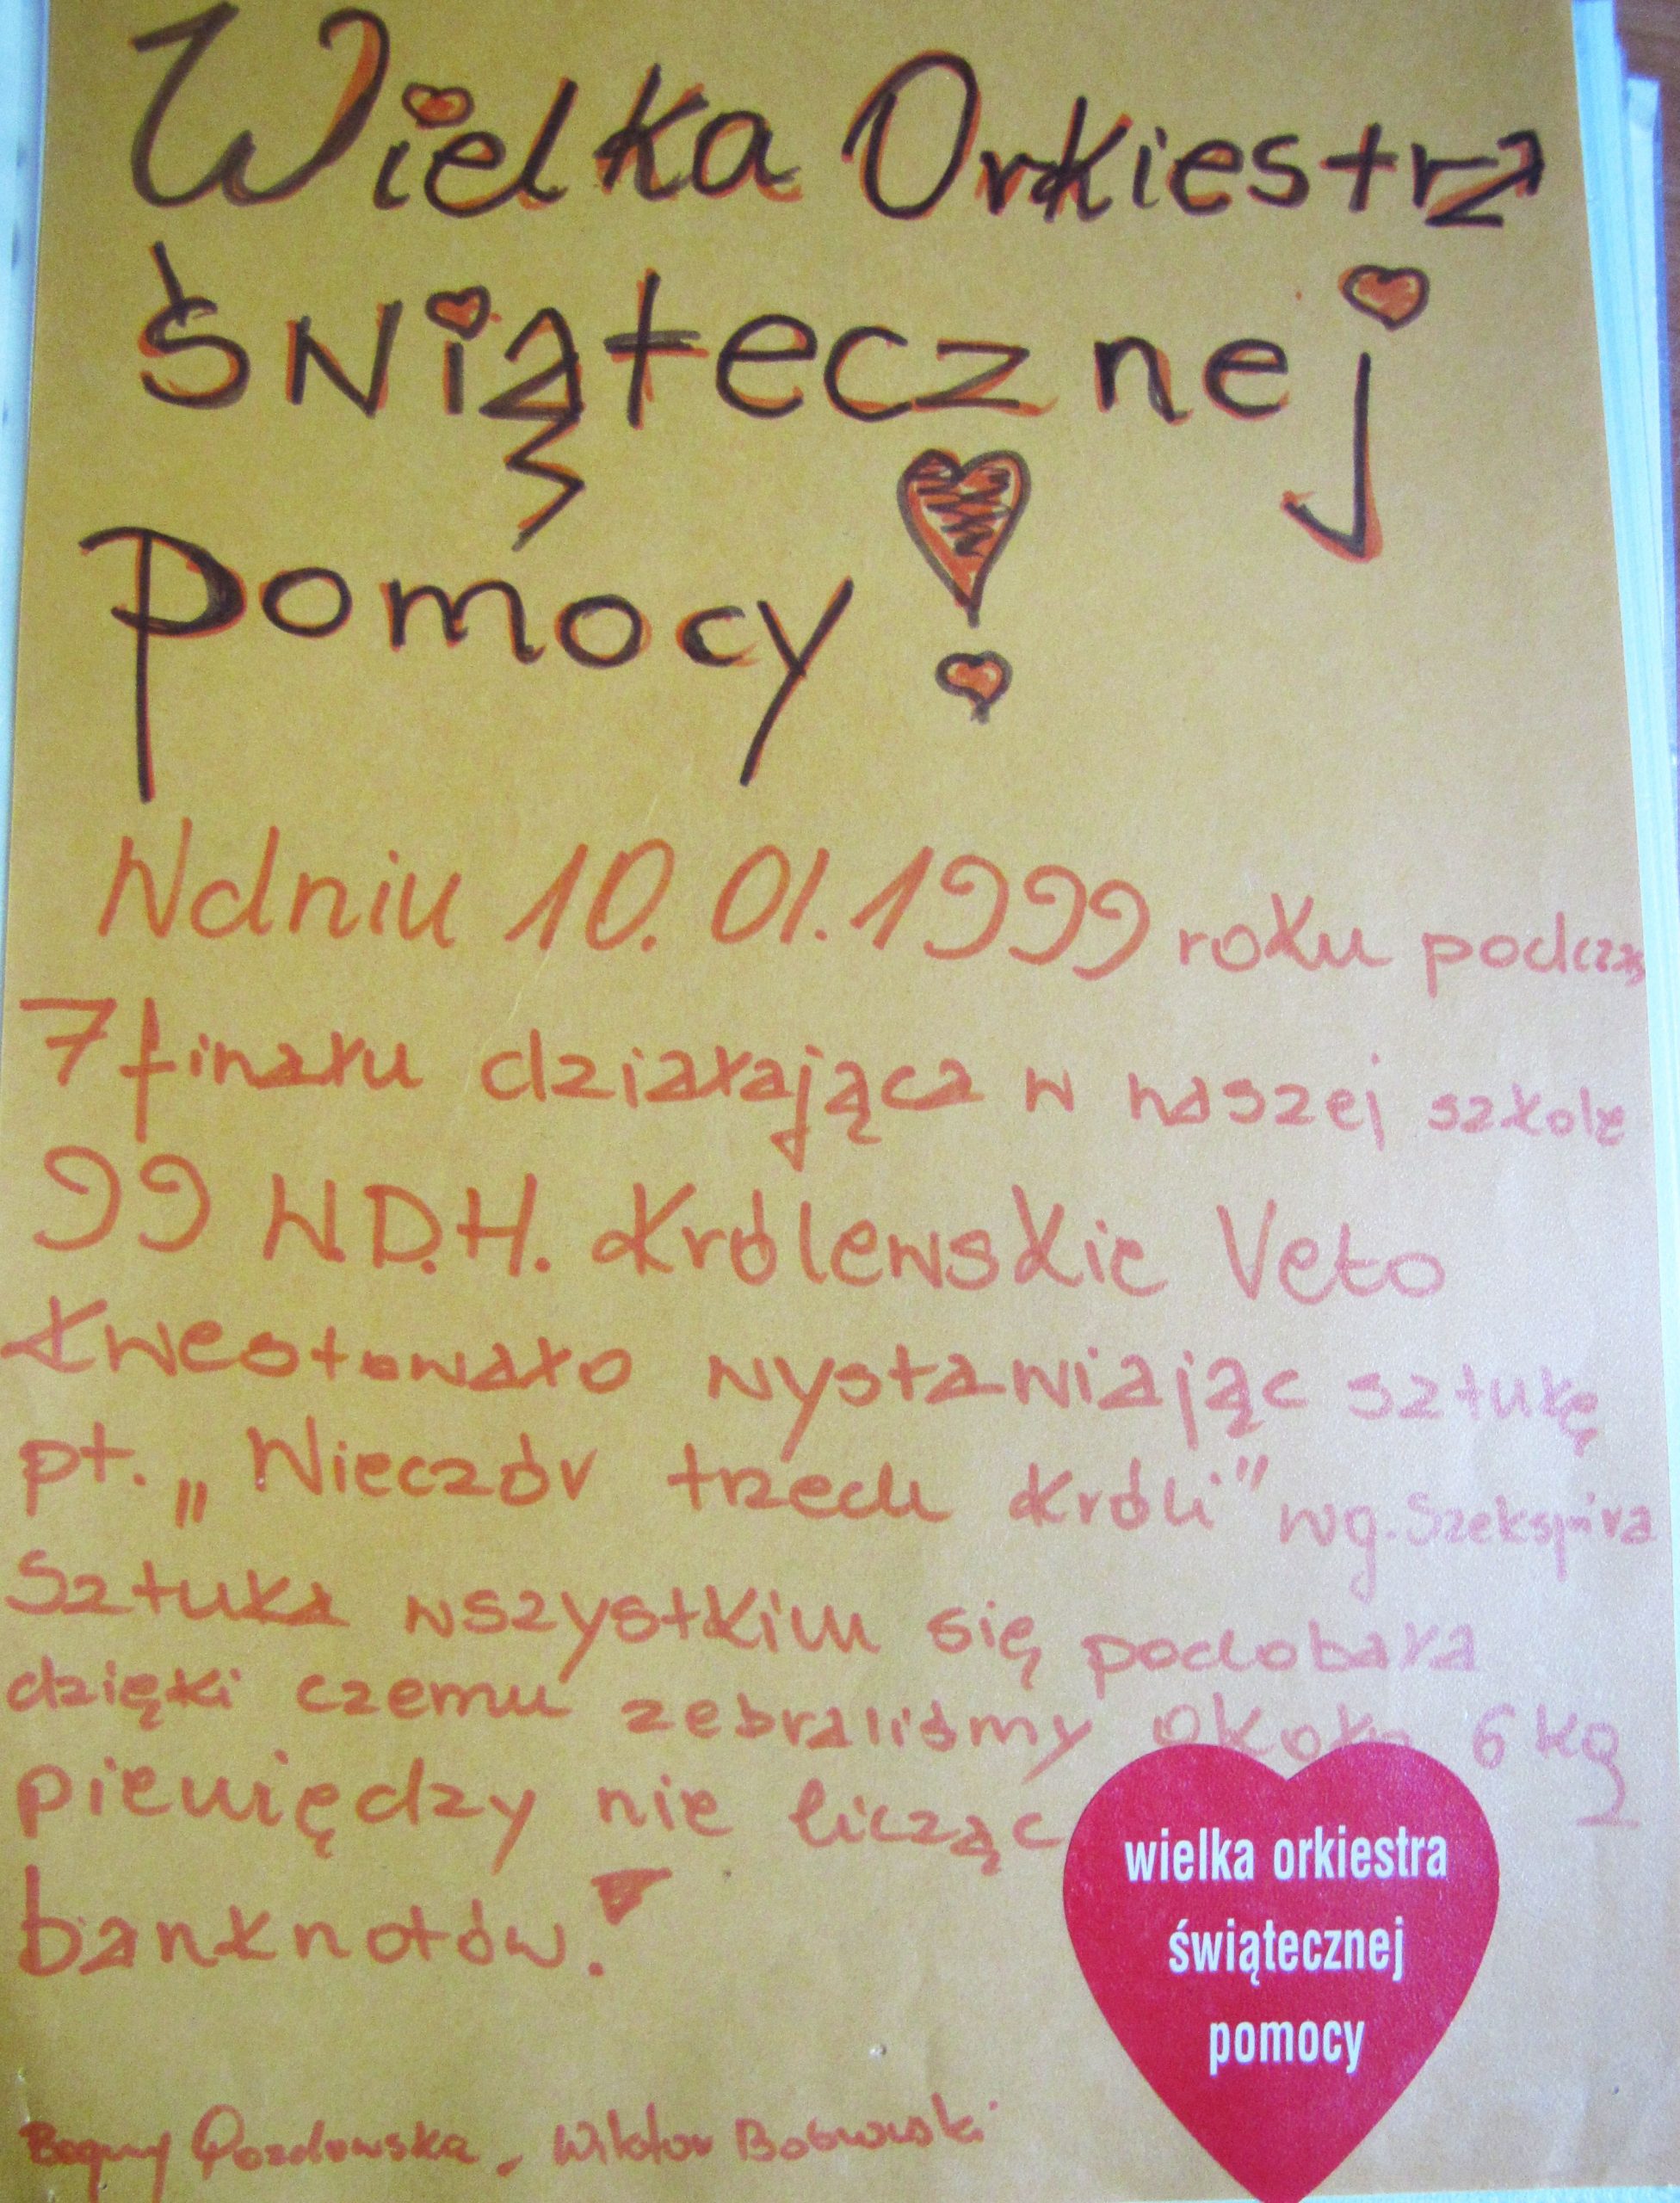 Wielka Orkiestra
Świątecznej
Pomocy!
W dniu 10.01.1999 roku podczas
7 finału działająca w naszej szkole
99 W.D.H. Królewskie Veto
kwestowało wystawiając sztukę
pt. „Wieczór trzech króli" wg. Szekspira
Sztuka wszystkim się podobała
dzięki czemu zebraliśmy około 6 kg
pieniędzy nie licząc
banknotów.
Wiktor Bobrowski
wielka orkiestra
świątecznej
pomocy